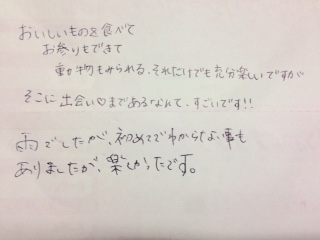 おいしいものを食べて
お参りもできて
動物もみられる、それだけでも充分楽しいですが
そこに出会い♡まであるなんて、すごいです!!
雨でしたが、初めてでわからない事も
ありましたが、楽しかったです。